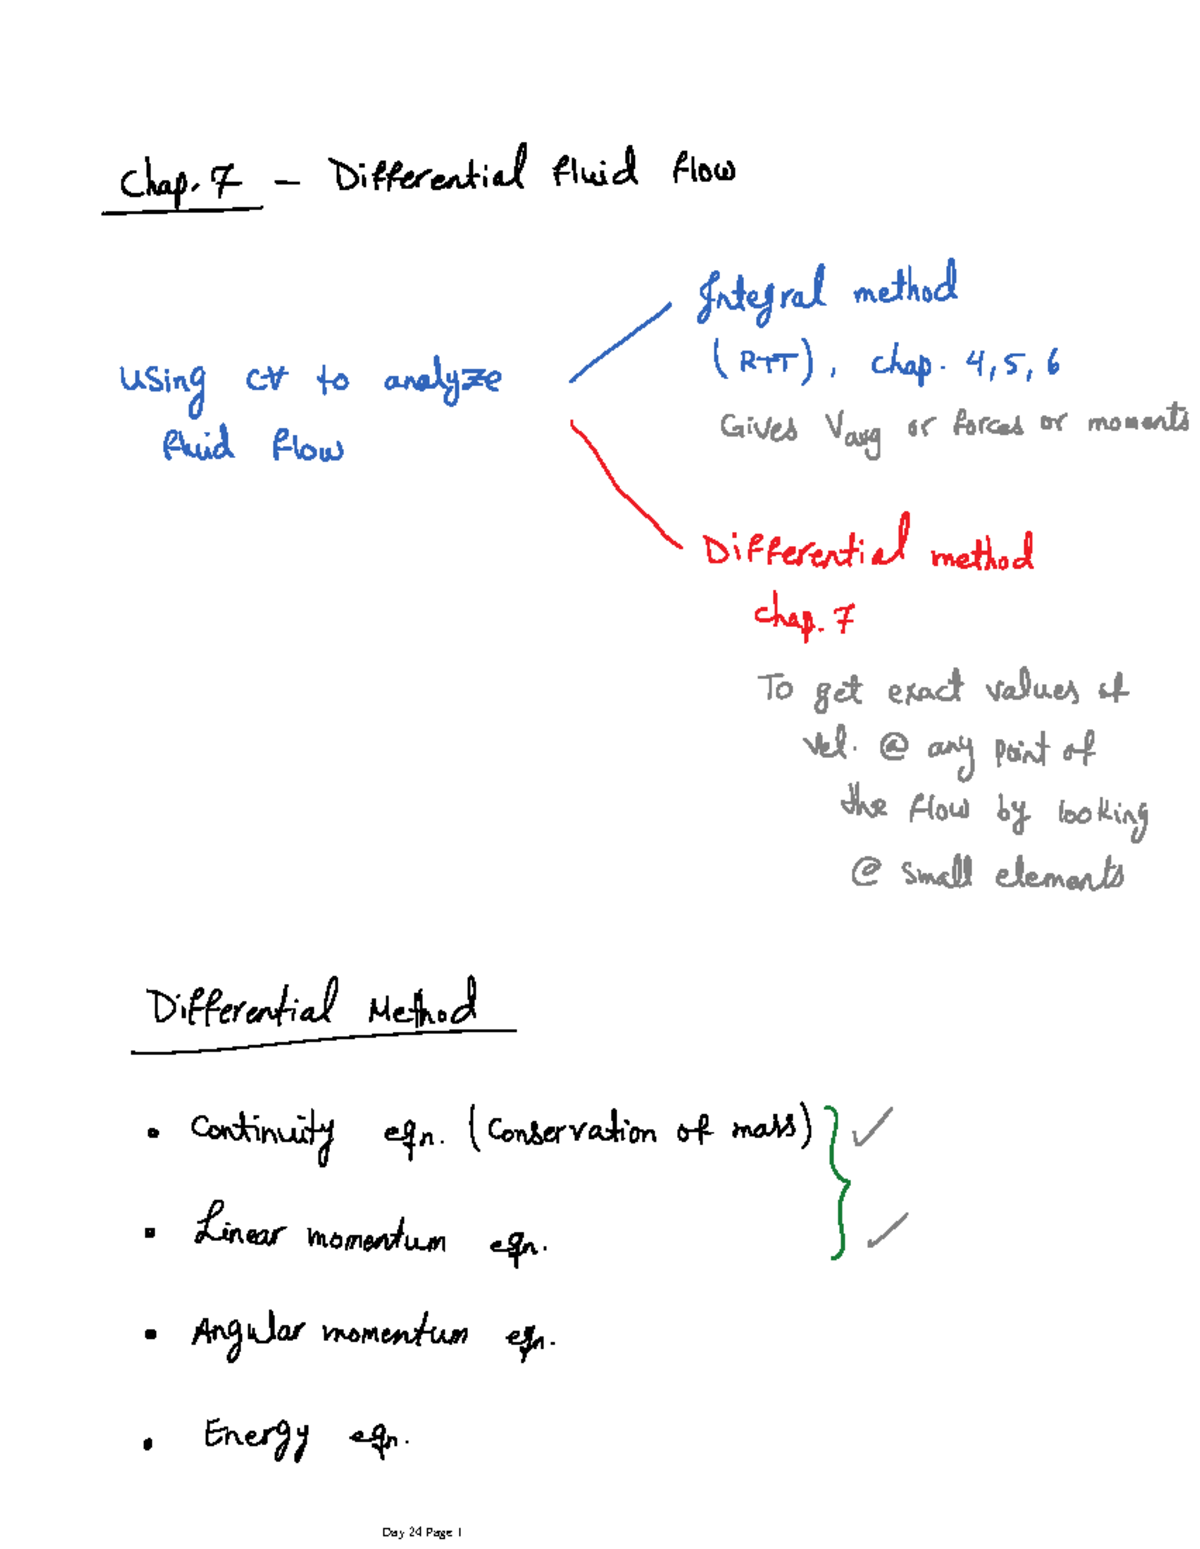 Chap. 7 - Differential fluid flow
Integral method
(RTT), chap. 4, 5, 6
Gives Vavg or forces or moments
Using CV to analyze
fluid flow
Differential method
chap. 7
To get exact values of
vel. @ any point of
the flow by looking
@ small elements
Differential Method
• Continuity eqn. (Conservation of mass) } ✓
• Linear momentum eqn. ✓
• Angular momentum eqn.
• Energy eqn.
Day 24 Page 1